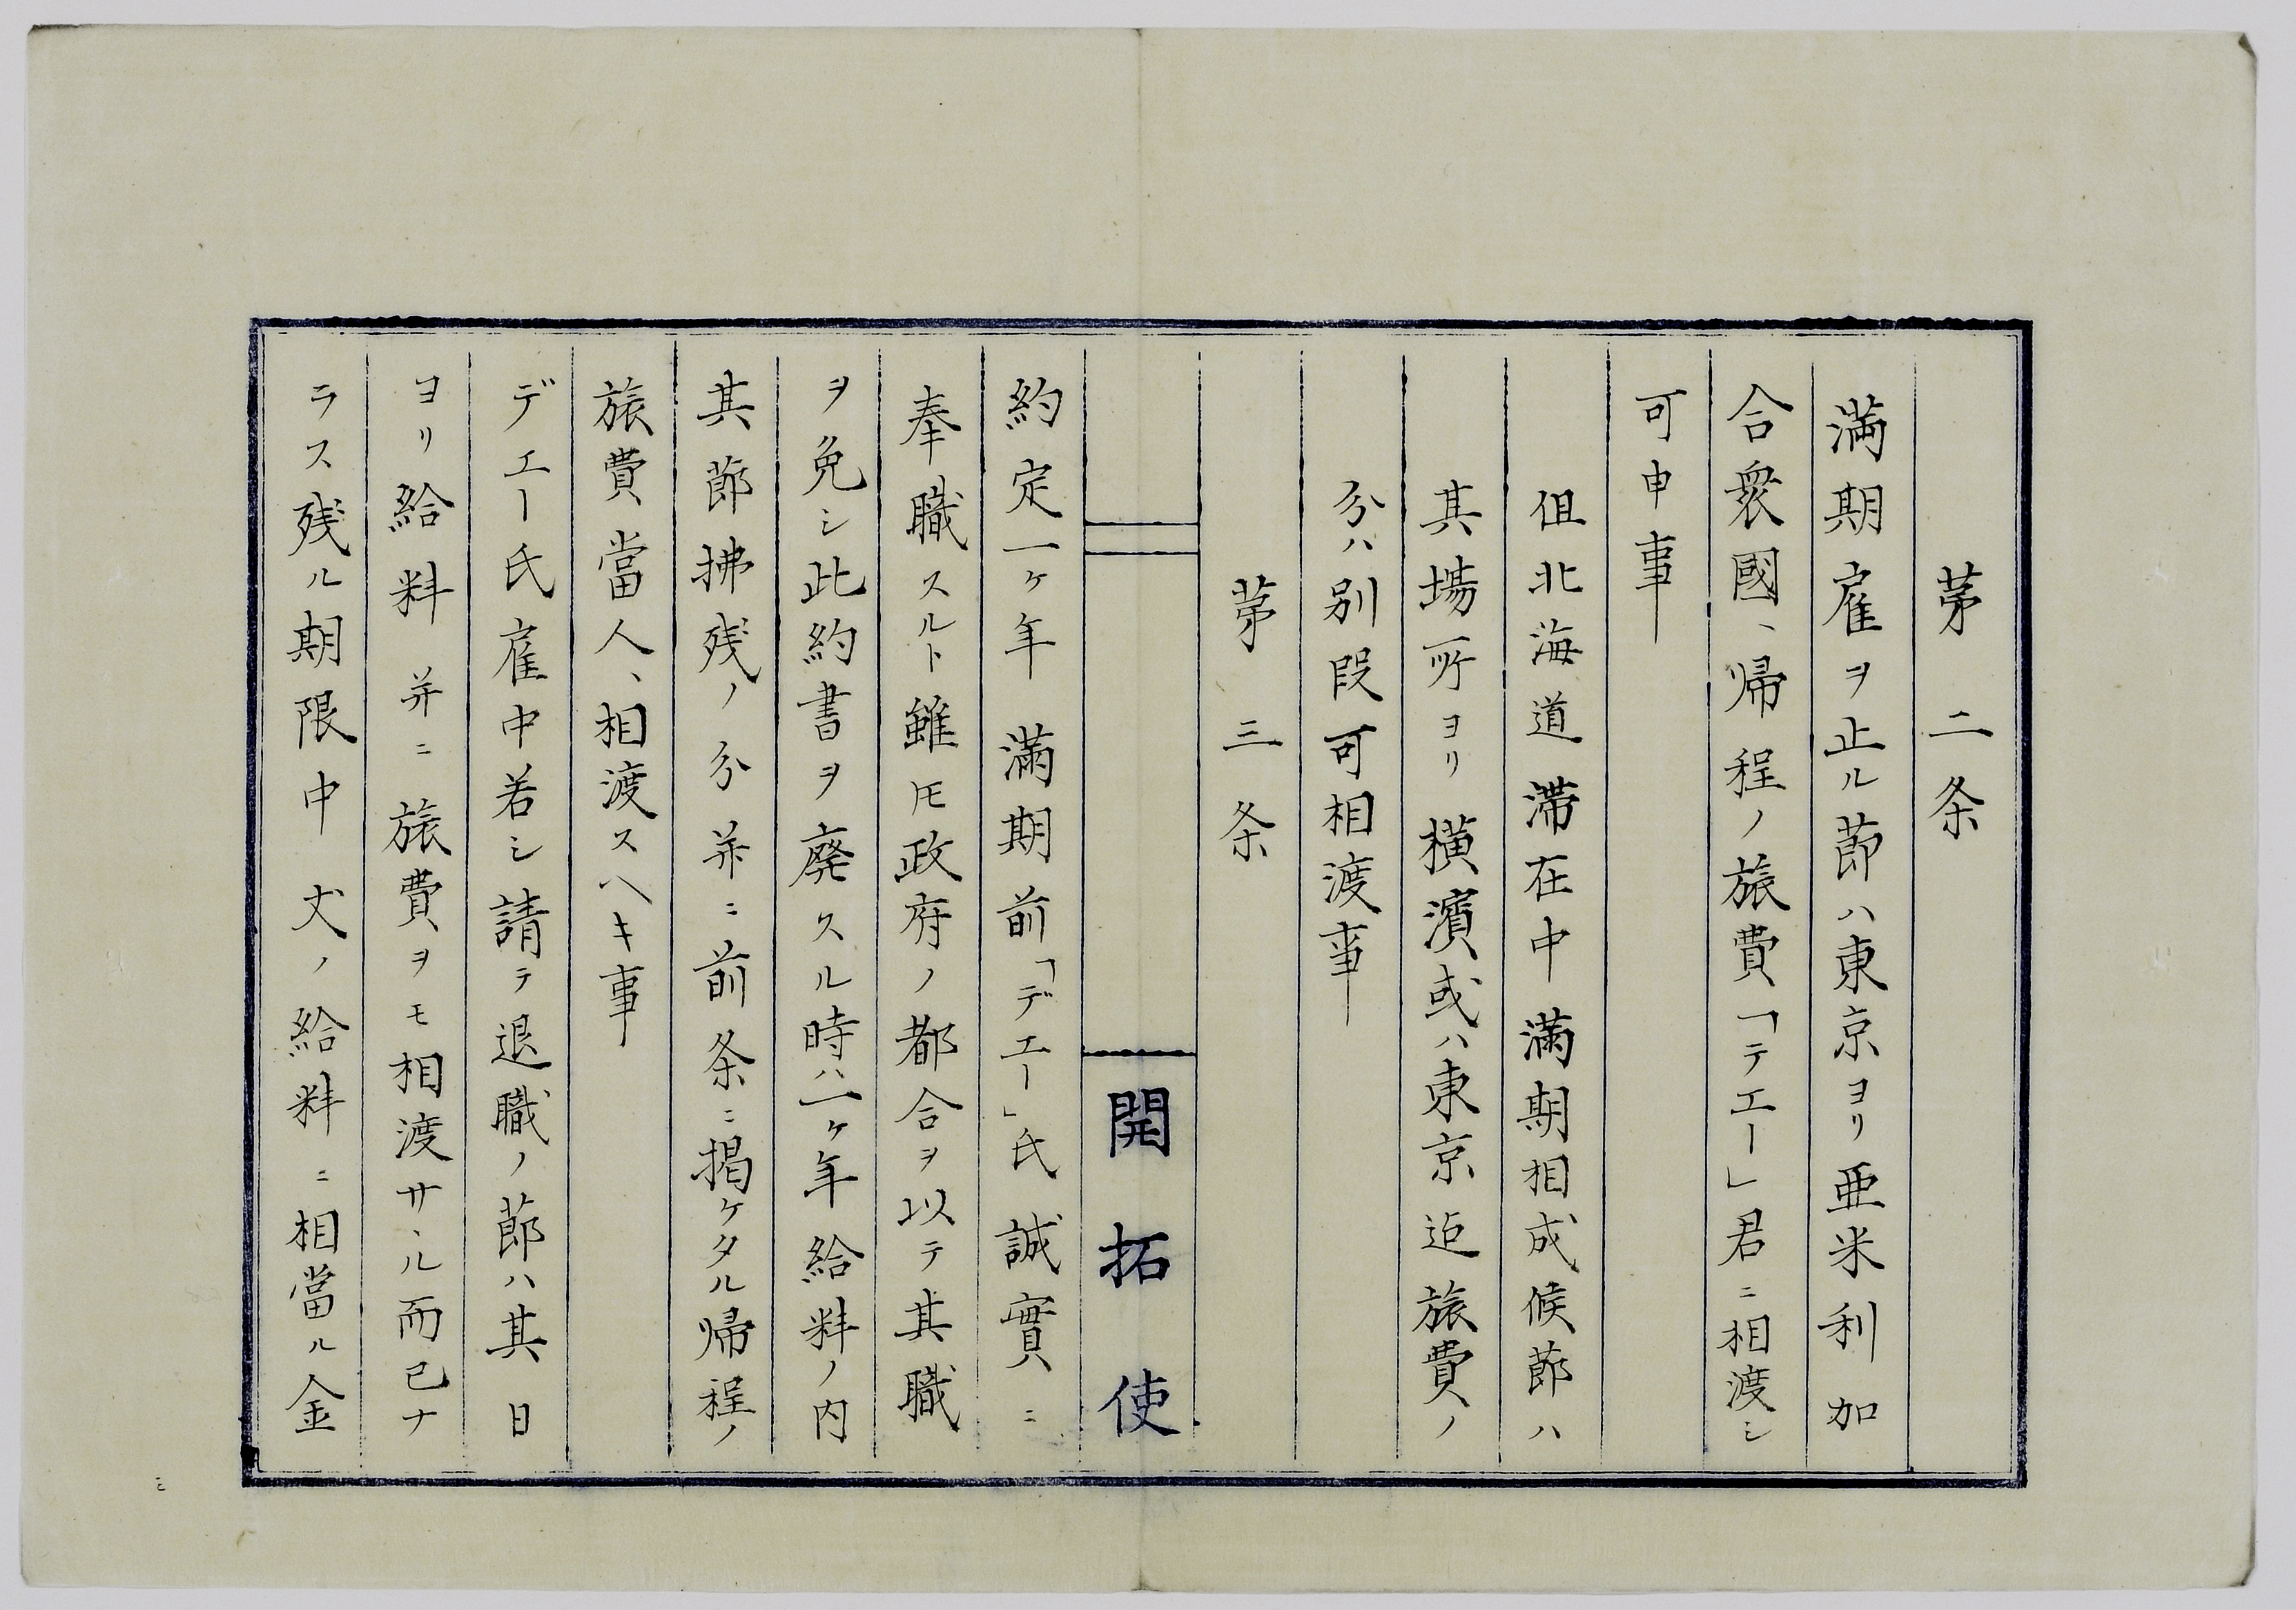 茅二条
満期雇ヲ止ル節ハ東京ヨリ亜米利加
合衆國ヘ帰程ノ旅費「テエー」君ニ相渡シ
可申事
但北海道滞在中満期相成候節ハ
其場所ヨリ横濱或ハ東京迄旅費ノ
分ハ別段可相渡事
茅三条
開拓使
約定一ケ年満期前「デエー」氏誠實ニ
奉職スルト雖𪜈政府ノ都合ヲ以テ其職
ヲ免シ此約書ヲ廃スル時ハ一ケ年給料ノ内
其節拂残ノ分并ニ前条ニ掲ケタル帰程ノ
旅費當人ヘ相渡スヘキ事
デエー氏雇中若シ請テ退職ノ節ハ其日
ヨリ給料并ニ旅費ヲモ相渡サヽル而已ナ
ラス残ル期限中丈ノ給料ニ相當ル金
三